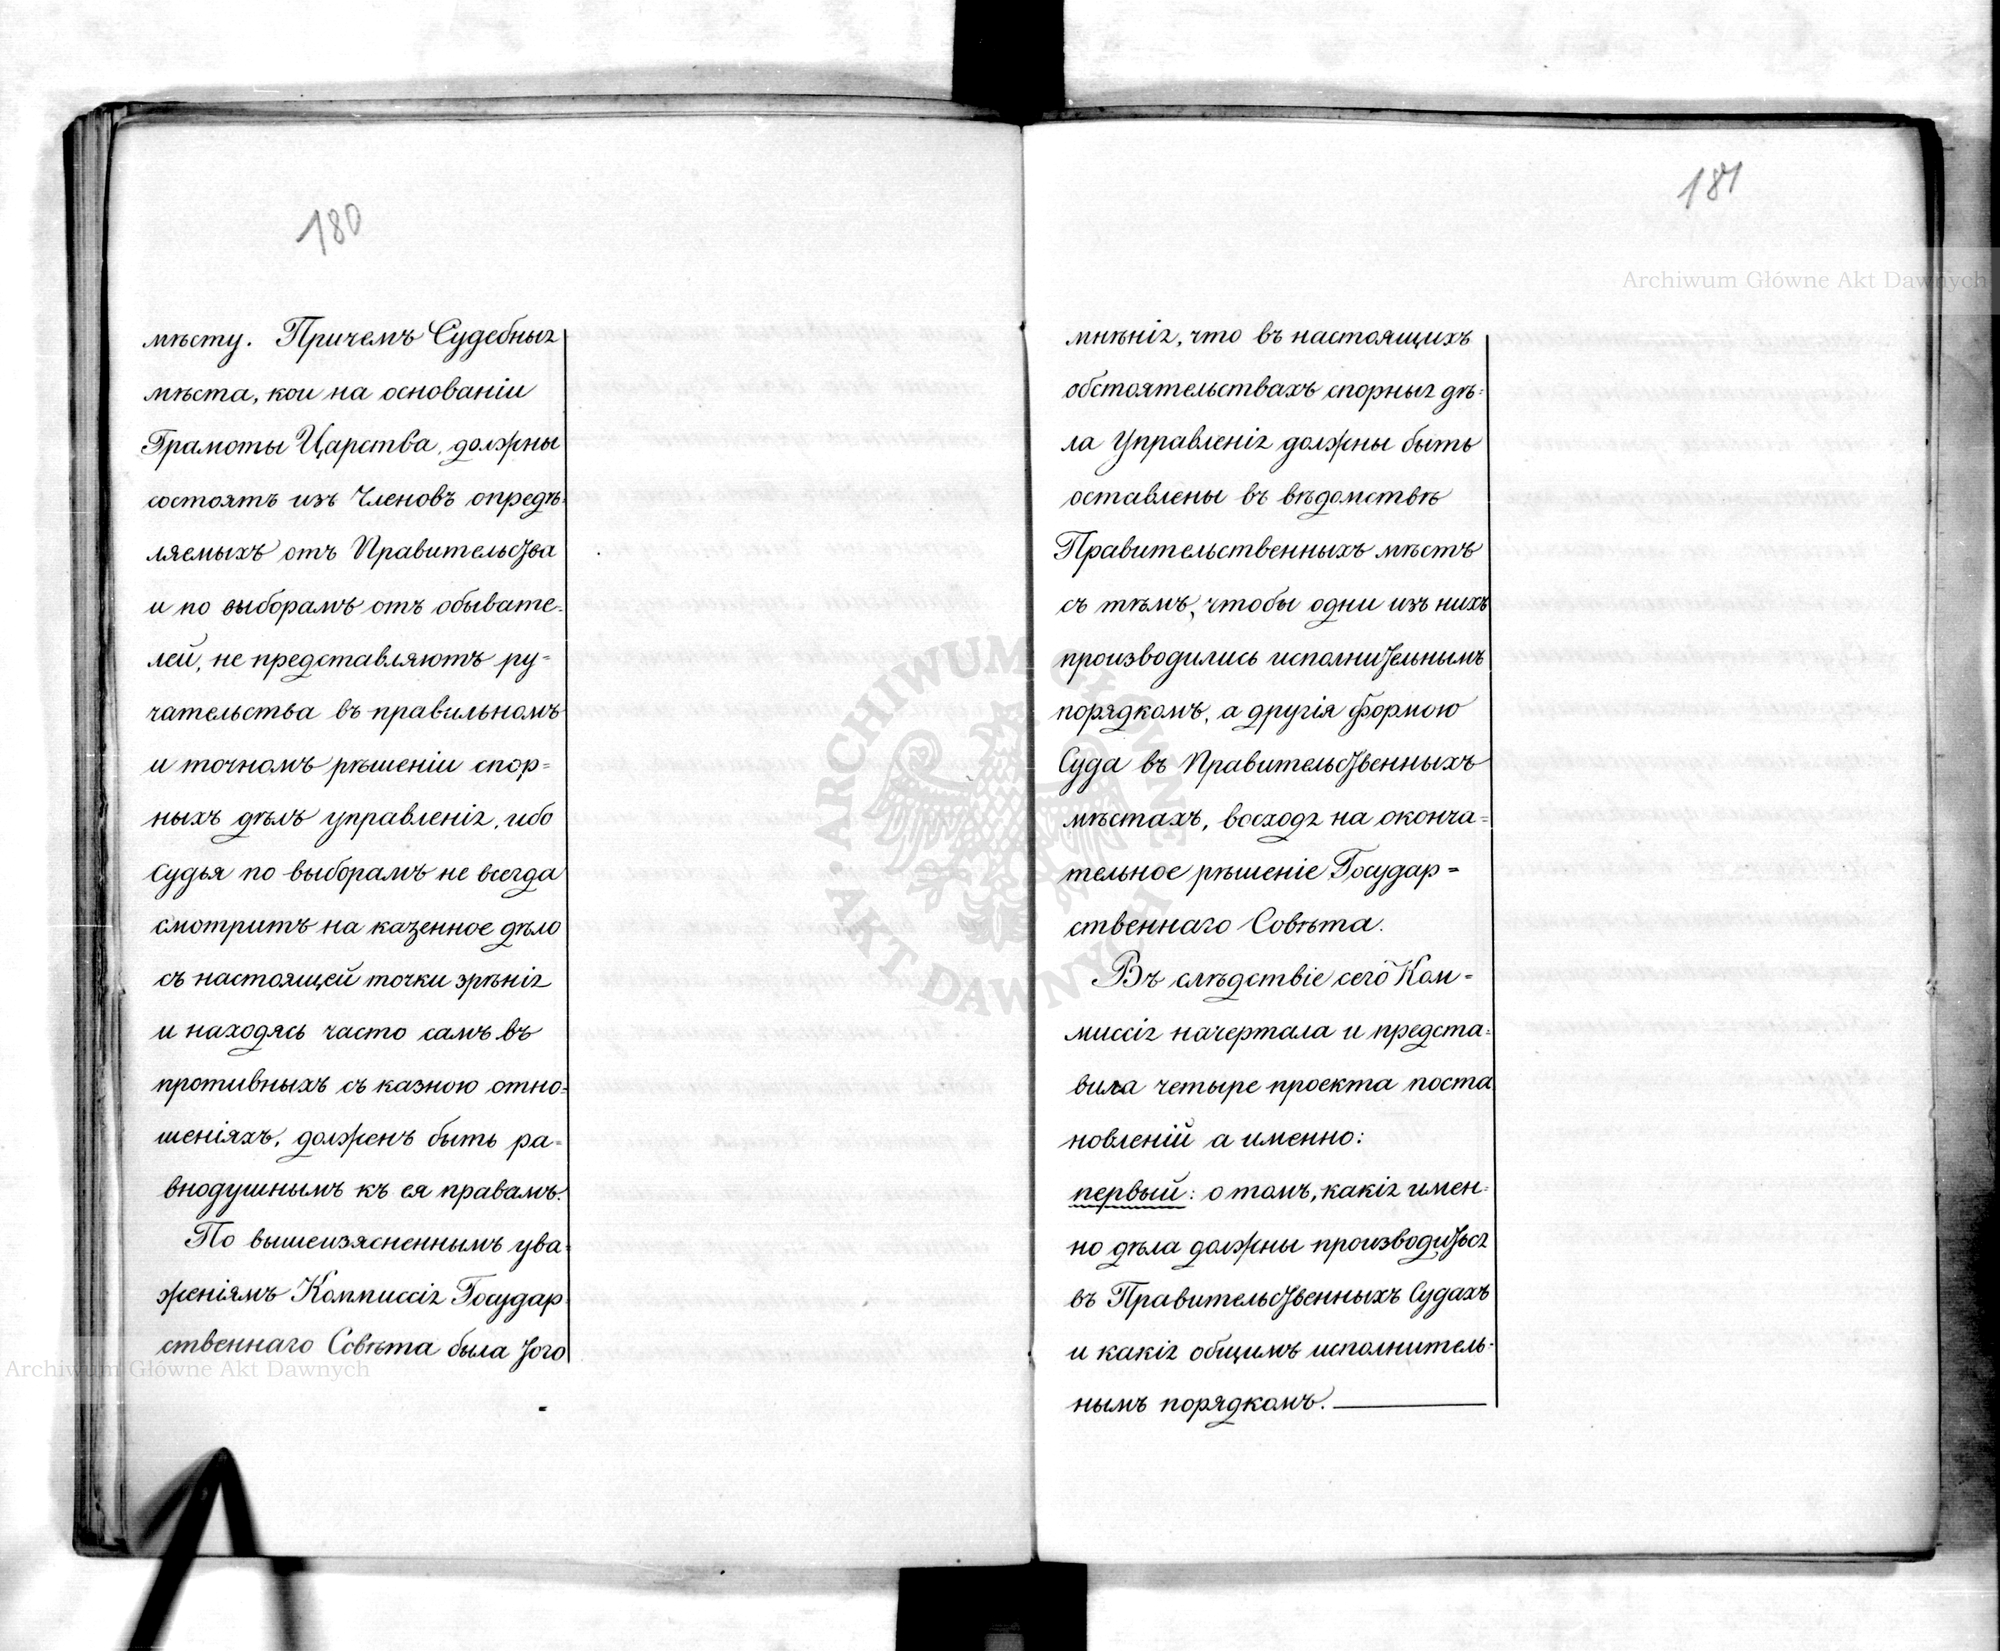 180
мѣсту. Причемъ Судебныя
мѣста, кои на основаніи
Грамоты Царства, должны
состоять изъ Членовъ опредѣ-
ляемыхъ отъ Правительства
и по выборамъ отъ обывате-
лей, не представляютъ ру-
чательства въ правильномъ
и точномъ рѣшеніи спор-
ныхъ дѣлъ управленія, ибо
судья по выборамъ не всегда
смотритъ на казенное дѣло
съ настоящей точки зрѣнія
и находясь часто самъ въ
противныхъ съ казною отно-
шеніяхъ, долженъ быть ра-
внодушнымъ къ ея правамъ.
По вышеизясненнымъ ува-
женіямъ Коммиссія Государ
ственнаго Совѣта была того
181
мнѣнія, что въ настоящихъ
обстоятельствахъ спорныя дѣ-
ла Управленія должны быть
оставлены въ вѣдомствѣ
Правительственныхъ мѣстъ
съ тѣмъ, чтобы одни изъ нихъ
производились исполнительнымъ
порядкомъ, а другія формою
Суда въ Правительственныхъ
мѣстахъ, восходя на оконча-
тельное рѣшеніе Государ-
ственнаго Совѣта.
Въ слѣдствіе сего Ком-
миссія начертала и предста-
вила четыре проекта поста
новленій а именно:
первый: о томъ, какія имен-
но дѣла должны производиться
въ Правительственныхъ Судахъ
и какія общимъ исполнитель-
нымъ порядкомъ.
Archiwum Główne Akt Dawnych
Archiwum Główne Akt Dawnych
ARCHIWUM GŁÓWNE AKT DAWNYCH